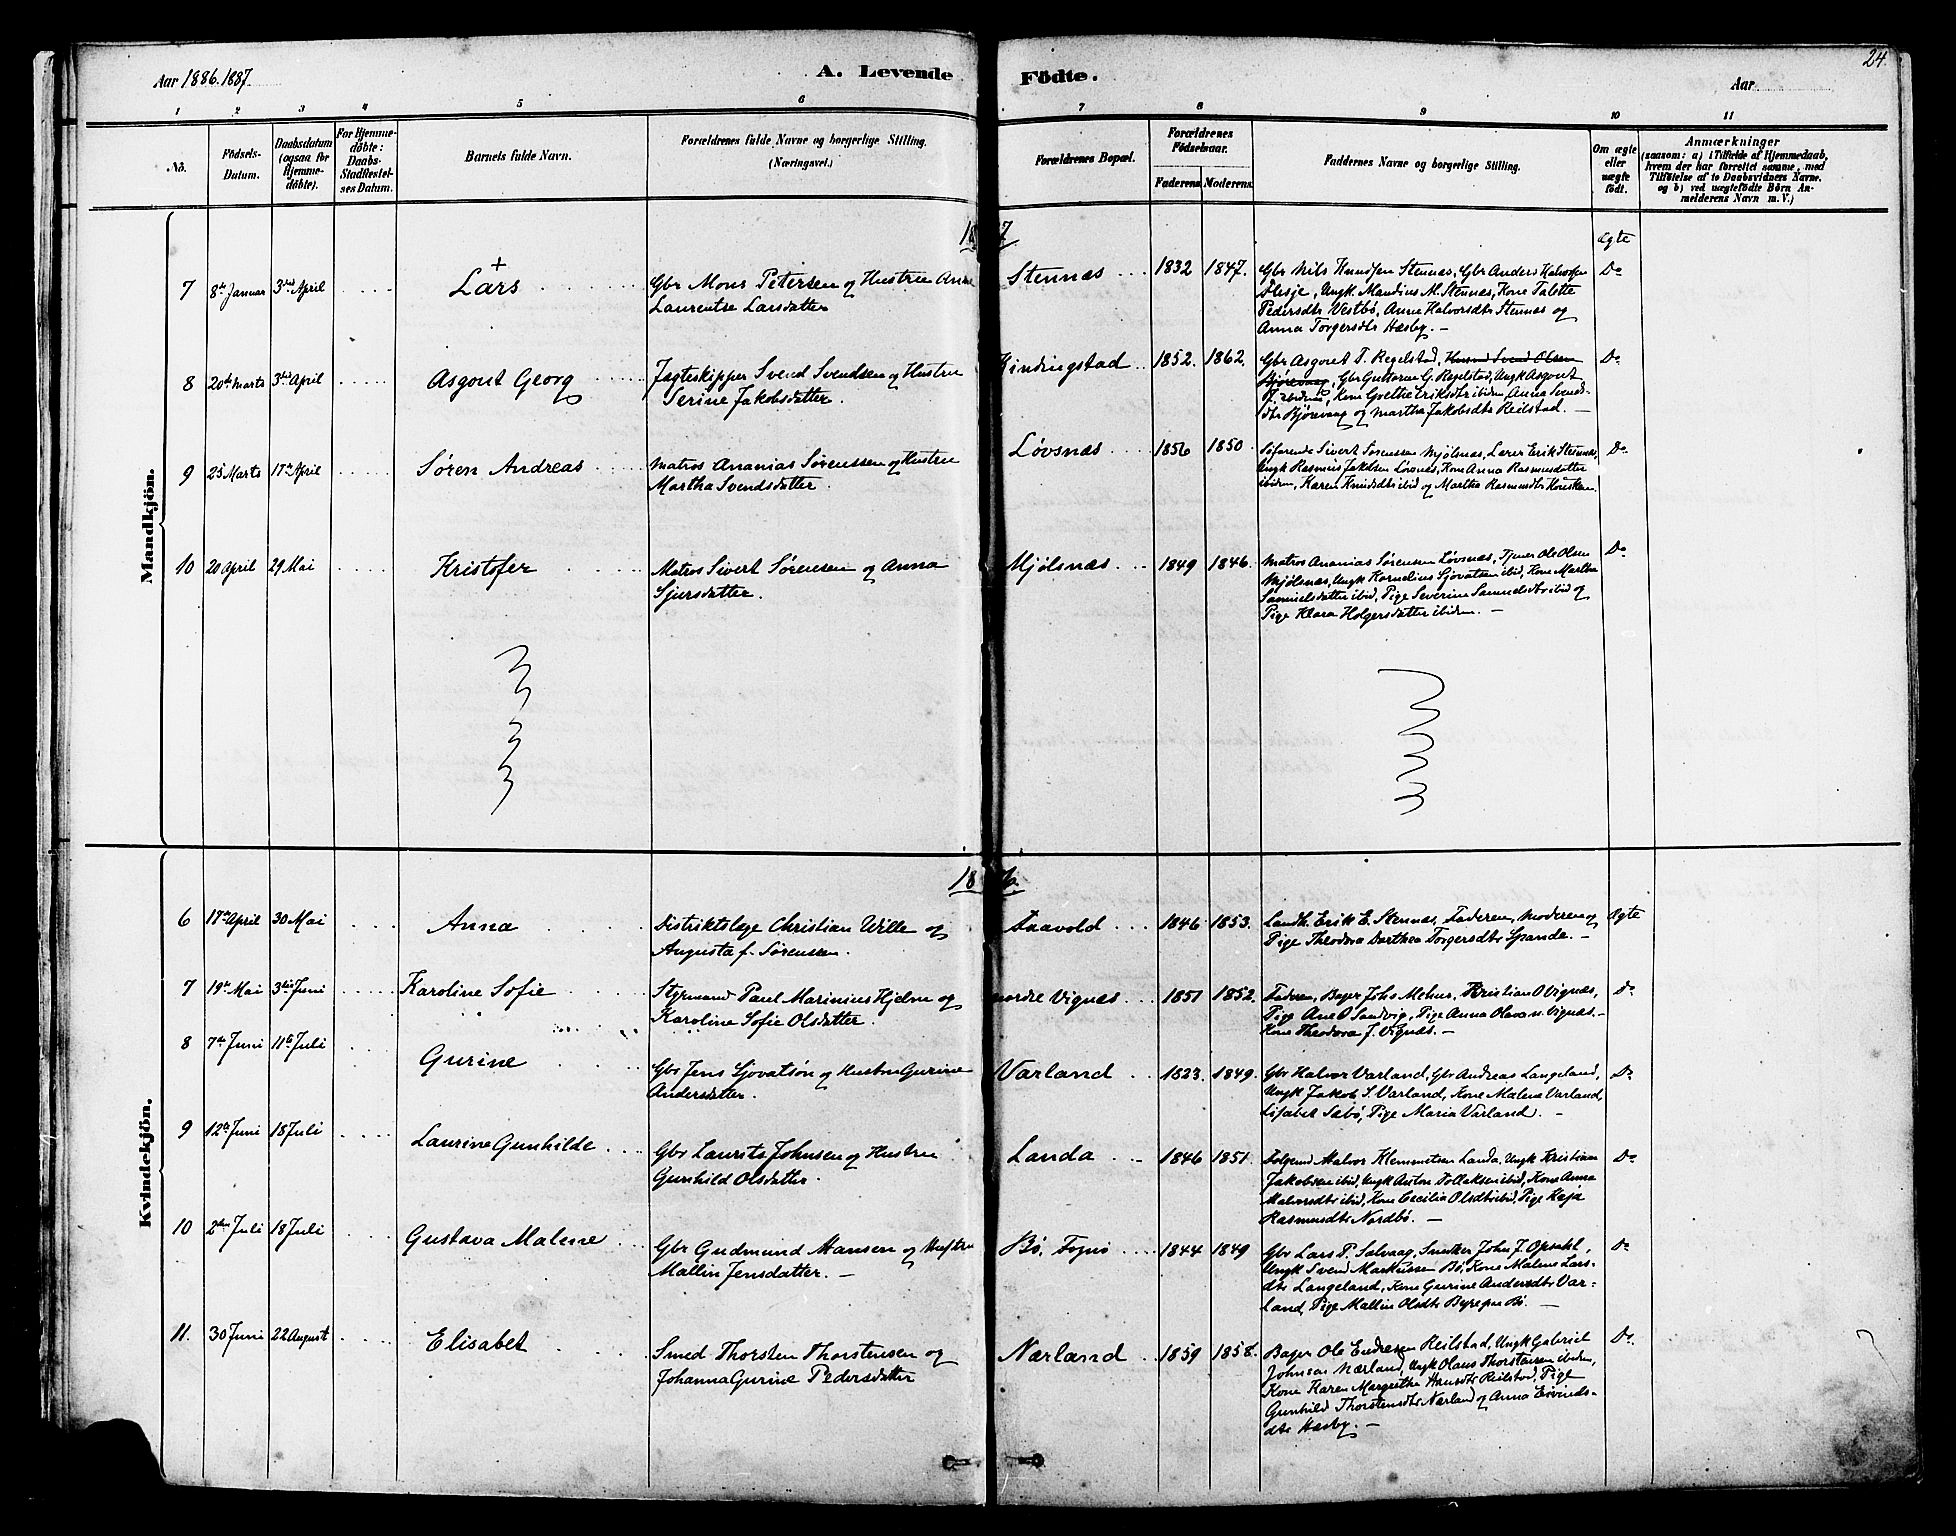 24.
Aar 1886.1887.
A. Levende Födte.
Aar
1 2 3 4 5 6 7 8 9 10 11
No.
Födsels-
Datum.
Daabsdatum
(ogsaa for
Hjemme-
døbte).
For Hjemme-
døbte:
Daabs-
Stadfæstel-
ses Datum.
Barnets fulde Navn.
Forældrenes fulde Navne og borgerlige Stilling.
(Næringsvei.)
Forældrenes Bopæl.
Forældrenes
Födselsaar.
Faderens. Moderens.
Faddernes Navne og borgerlige Stilling.
Om ægte
eller
uægte
født.
Anmærkninger
(saasom: a) i Tilfælde af Hjemmedaab,
hvem der har forrettet samme, med
Tilföielse af to Daabsvidners Navne.
og b) ved uægtefödte Börn An-
melderens Navn m. V.)
Mandkjön.
1887.
Ægte
7 8de Januar 3die April
+
Lars
Gbr Mons Petersen og Hustru Anne
Laurentse Larsdatter
Stennæs 1832 1847.
Gbr Nils Knudsen Stennæs, Gbr Anders Halvorsen
Ølesje, Ungk. Mandius M. Stennæs, Kone Talette
Pedersdtr Vestbø, Anne Halvorsdtr Stennæs og
Anna Torgersdtr Hæsby. —
Do
8 20de Marts 3die April
Asgout Georg
Jagteskipper Svend Svendsen og Hustru
Serine Jakobsdatter.
Kindingstad 1852. 1862.
Gbr Asgout T. Regelstad, Husmd Svend Olsen
Bjørevaag, Gbr Guttorm G. Regelstad, Ungk Asgout
J. ibidem, Kone Goethe Eriksdtr ibidem Anna Svends-
dtr Bjørevaag og Martha Jakobsdtr Reilstad. —
Do
9 25 Marts 17de April
Søren Andreas
Matros Ananias Sørenssen og Hustru
Martha Svendsdatter.
Løvsnæs 1856 1850
Søfarende Sivert Sørensen Mjølsnæs, Lærer Erik Stennæs,
Ungk Rasmus Jakobsen Løvsnæs, Kone Anna Rasmusdatter
ibidem, Karen Knudsdtr ibid og Martha Rasmusdtr
Do
10 20 April 29 Mai
Kristofer
Matros Sivert Sørensen og Anna
Sjursdatter.
Mjølsnæs 1849 1846.
Matros Ananias Sørensen Løvsnæs, Tjener Ole Olsen
Mjølsnæs, Ungk Kornelius Sjovatsen ibid, Kone Martha
Samuelsdatter ibid, Pige Severine Samuelsdtr ibid og
Pige Klara Holgersdatter ibidem. —
Do
Kvindekjön.
1886.
6 17de April 30 Mai
Anna
Distriktslæge Christian Wille og
Augusta f. Sørenssen.
Aavold 1846 1853.
Landh. Erik E. Stennæs, Faderen, Moderen og
Pige Theodora Dorthea Torgersdtr Spande. —
Ægte
7 19de Mai 3die Juni
Karoline Sofie
Styrmand Paul Marinius Hjelm og
Karoline Sofie Olsdatter.
nordre Vignæs 1851 1852.
Faderen, Bager Johs Mehus, Kristian O Vignæs,
Pige Ane O Sandvig, Pige Anna Olava n. Vignæs. —
Kone Theodora J. Vignæs. —
Do
8 7de Juni 11te Juli
Gurine
Gbr Jens Sjovatsön og Hustru Gurine
Andersdatter.
Varland 1823. 1849.
Gbr Halvor Varland, Gbr Andreas Langeland,
Ungk Jakob S. Varland, Kone Malena Varland,
Lisabet Sæbø, Pige Maria Varland. —
Do
9 12te Juni 18 Juli
Laurine Gunhilde
Gbr Laurits Johnsen og Hustru
Gunhild Olsdatter.
Landa 1846 1851.
Følgemd Halvor Klemmetsen Landa, Ungk Kristian
Jakobsen ibid, Ungk Anton Tollaksen ibid, Kone Anna
Halvorsdtr ibid, Kone Cecilia Olsdtr ibid, Pige Kaja
Rasmusdtr Nordbø. —
Do
10 2den Juli 18 Juli
Gustava Maline
Gbr Gudmund Hansen og Hustru
Mallin Jensdatter. —
Bø, Fogn 1844 1849
Gbr Lars P. Salvaag, Snedker John J. Opsahl,
Ungk Svend Markussen Bø, Kone Malene Lars-
dtr Langeland, Kone Gurine Andersdtr Var-
land, Pige Mallin Olsdtr Byre pna Bø. —
Do
11. 30 Juni 22 August
Elisabet
Smed Thorsten Thorstensen og
Johanna Gurine Pedersdatter
Nærland 1859 1858.
Bager Ole Endresen Reilstad, Ungk Gabriel
Johnsen Nærland, Ungk Olaus Thorstensen ibidem,
Kone Karen Margrethe Hansdtr Reilstad, Pige
Gunhild Thorstensdtr Nærland og Anna Eivinds-
dtr Hæsby. —
Do